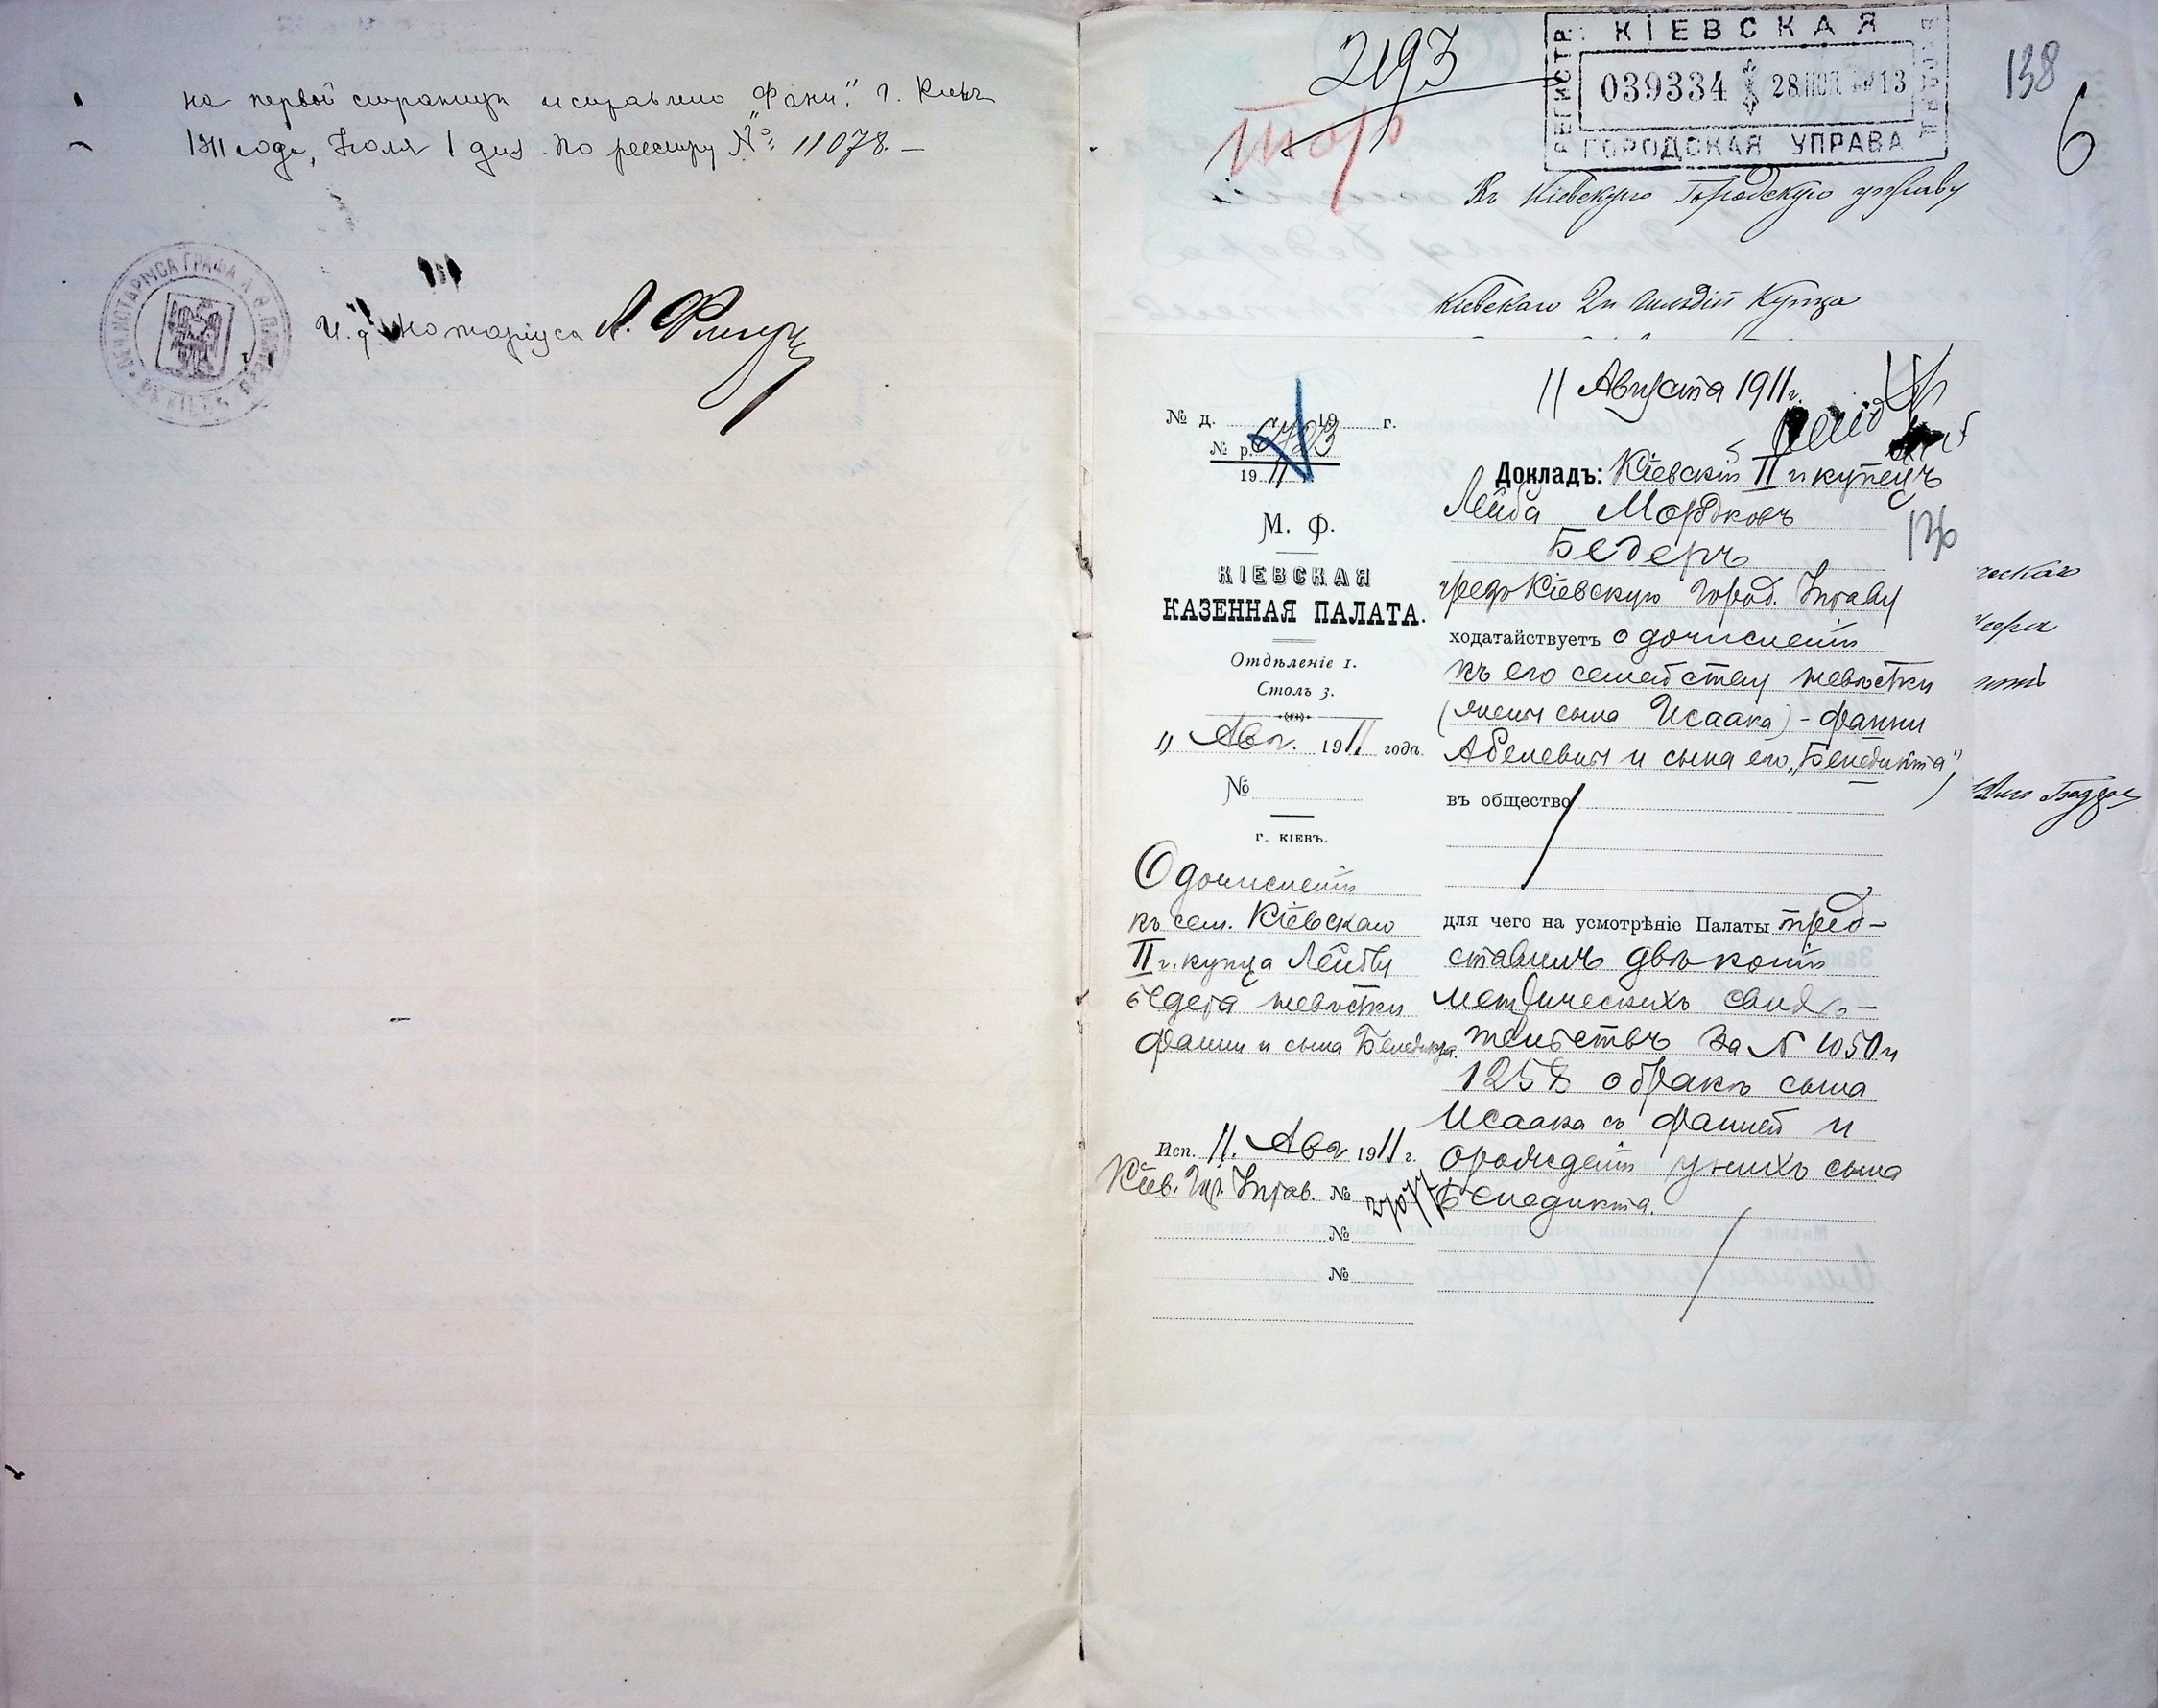 на первой страницѣ исправлено „Фани". г. Кіевъ
1911 года, Іюля 1 дня. По реестру №: 11078. —
И. д. Нотаріуса А.
НОТАРІУСА ГРАФА
КІЕВСКАЯ
РЕГИСТР
039334 28 ІЮЛ 1913
ГОРОДСКАЯ УПРАВА
2193
138
6
Въ Кіевскую Городскую управу
Кіевскаго 2й гильдіи Купца
11 Августа 1911 г.
№ д. 19 г.
№ р. 6723
19 11
М. Ф.
КІЕВСКАЯ
КАЗЕННАЯ ПАЛАТА.
Отдѣленіе 1.
Столъ 3.
11 Авг. 1911 года.
№
г. КІЕВЪ.
О дочисленіи
къ сем. Кіевскаго
II г. купца Лейбы
Бедера невѣстки
Фанни и сына Бенедикта.
Исп. 11. Авг 1911 г.
Кіев. Гор. Управ. №
№
№
Докладъ: Кіевскій II г. купецъ
Лейба Мордковъ
Бедеръ
136
чрезъ Кіевскую Город. Управу
ходатайствуетъ о дочисленіи
къ его семейству невѣстки
(жены сына Исаака) - Фанни
Абелевны и сына его „Бенедикта"
въ общество
для чего на усмотрѣніе Палаты пред-
ставилъ двѣ копіи
метрическихъ свидѣ-
тельствъ за № 1050 и
1258 о бракѣ сына
Исаака съ Фанней и
о рожденіи у нихъ сына
Бенедикта.